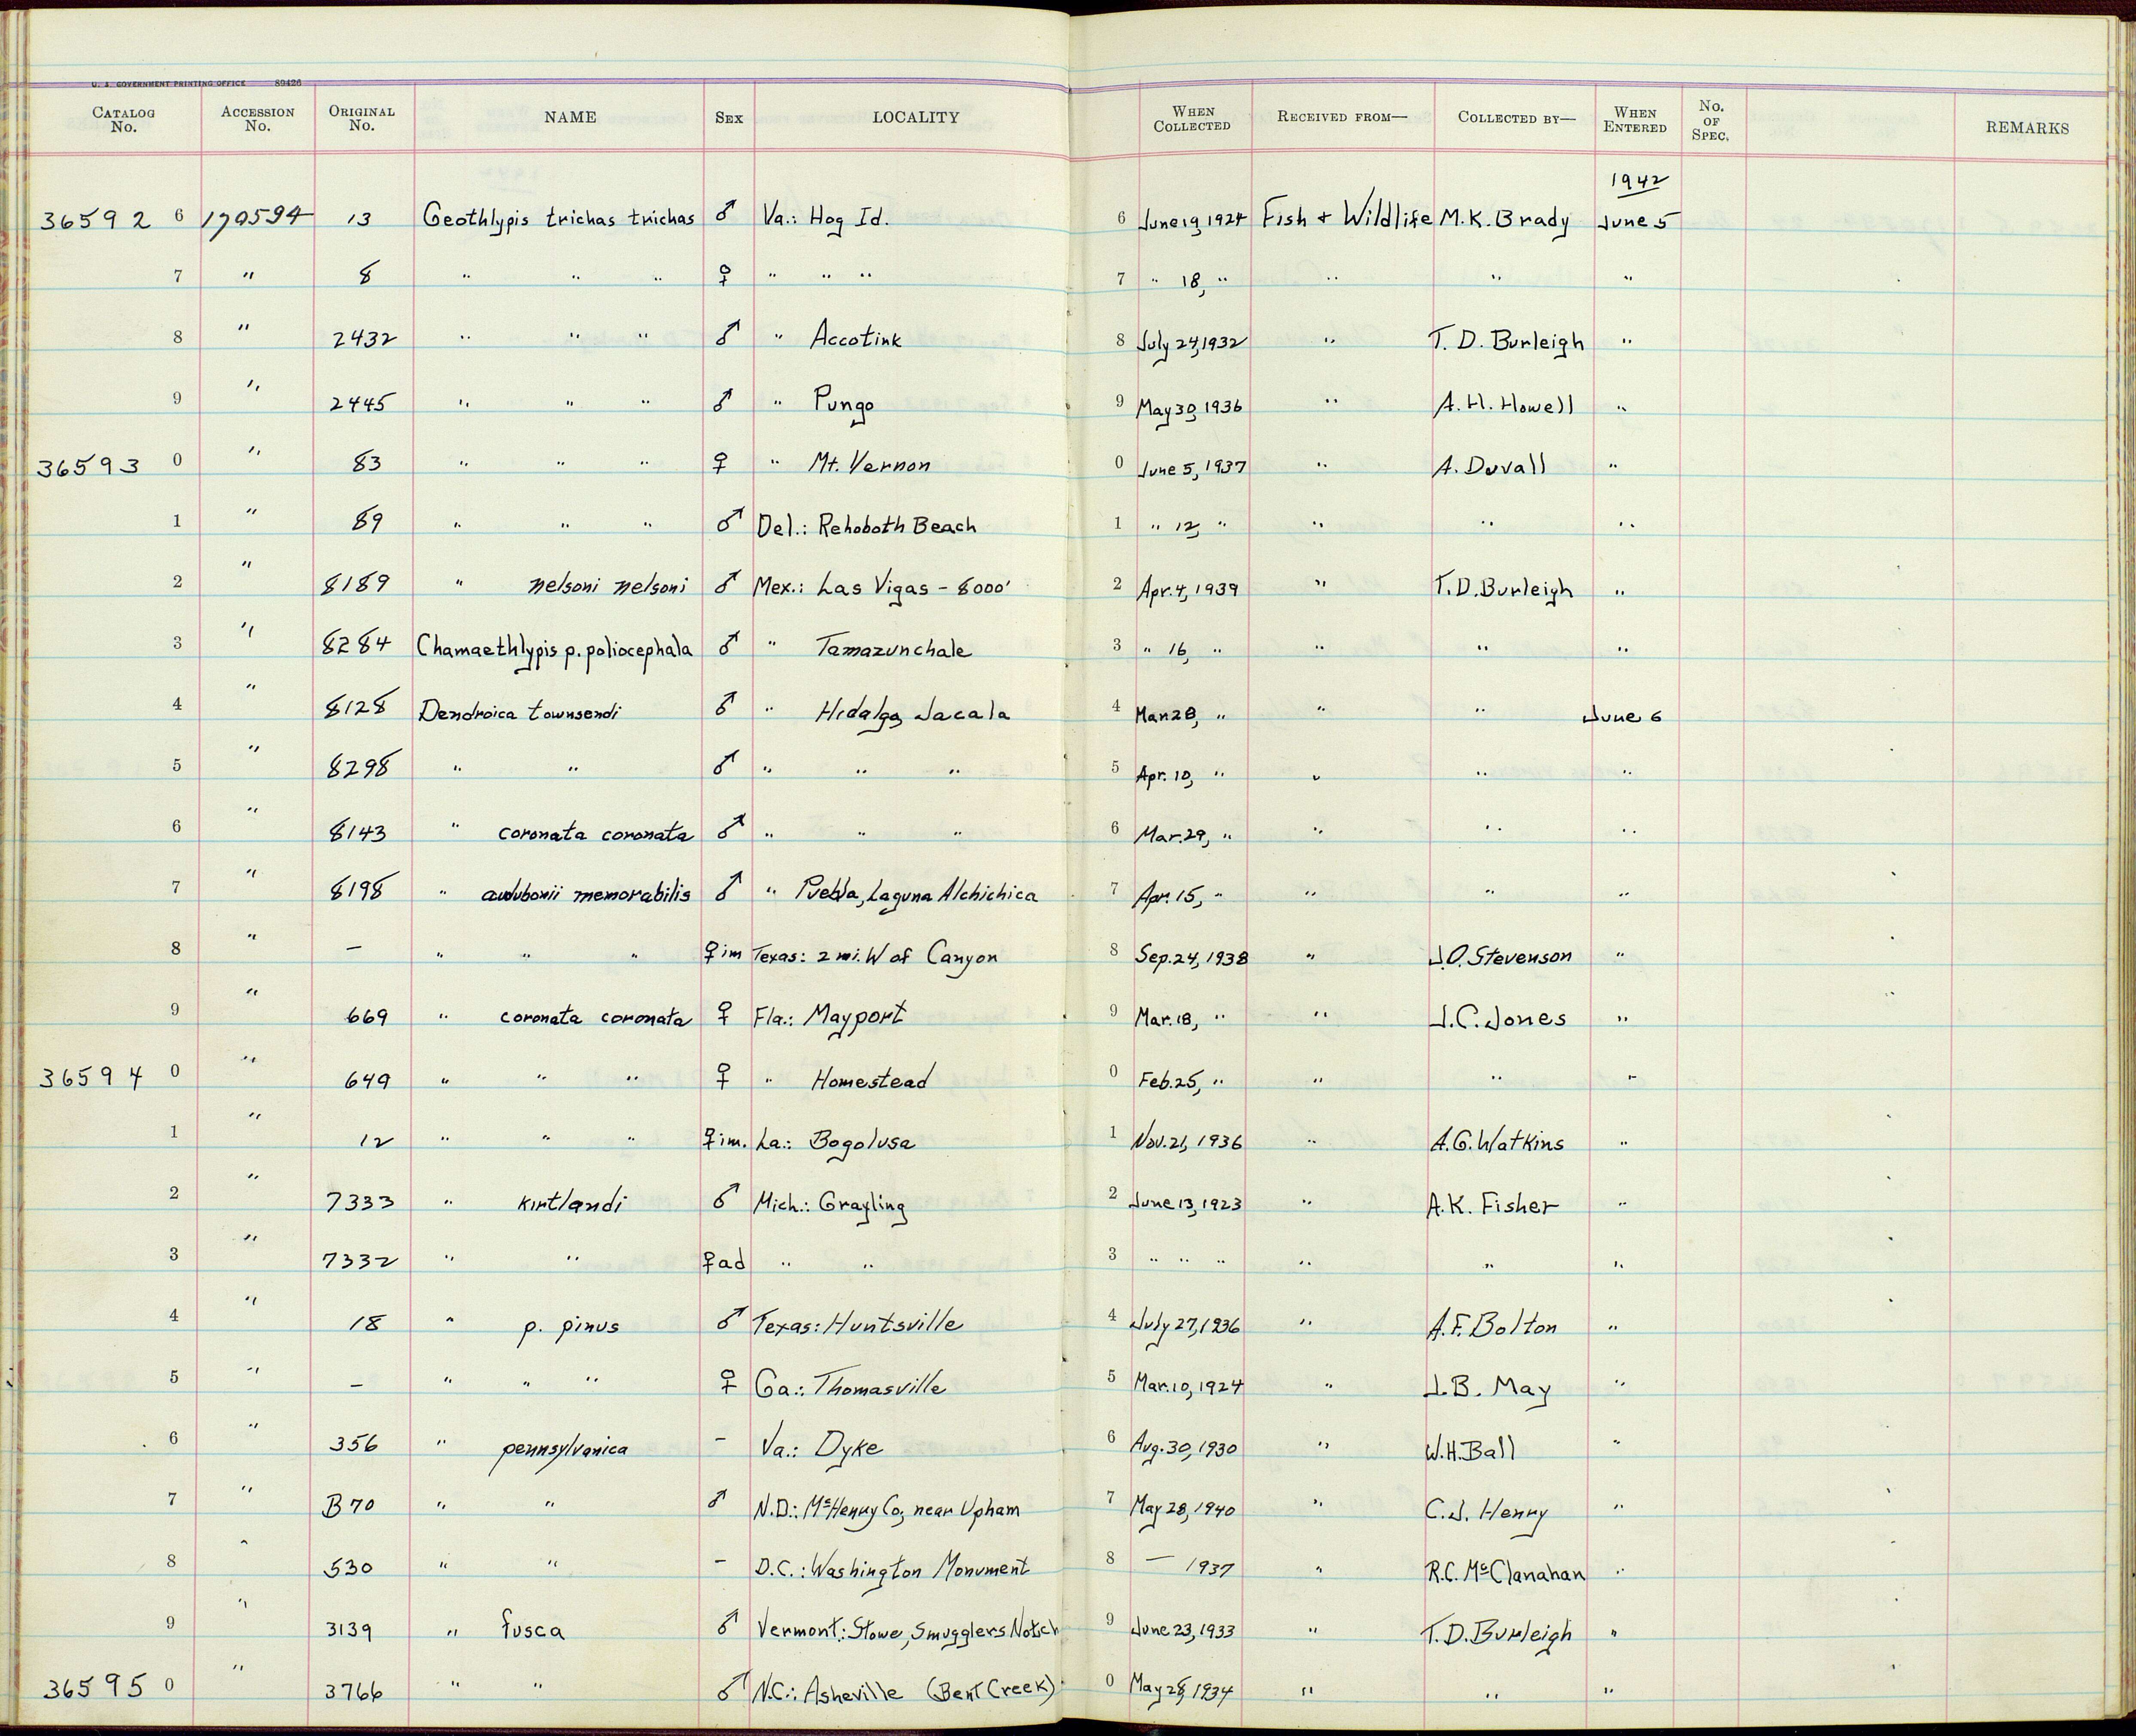 U. S. GOVERNMENT PRINTING OFFICE 89426
CATALOG No. ACCESSION No. ORIGINAL No. NAME SEX LOCALITY WHEN COLLECTED RECEIVED FROM— COLLECTED BY— WHEN ENTERED No. OF SPEC. REMARKS
1942
36592 6 170594 13 Geothlypis trichas trichas ♂ Va.: Hog Id. 6 June 19, 1924 Fish + Wildlife M.K. Brady June 5
7 " 8 " " " ♀ " " " 7 " 18, " " " "
8 " 2432 " " " ♂ " Accotink 8 July 24, 1932 " T. D. Burleigh "
9 " 2445 " " " ♂ " Pungo 9 May 30, 1936 " A. H. Howell "
36593 0 " 83 " " " ♀ " Mt. Vernon 0 June 5, 1937 " A. Duvall "
1 " 89 " " " ♂ Del.: Rehoboth Beach 1 " 12, " " " "
2 " 8189 " nelsoni nelsoni ♂ Mex.: Las Vigas - 8000' 2 Apr. 4, 1939 " T.D. Burleigh "
3 " 8284 Chamaethlypis p. poliocephala ♂ " Tamazunchale 3 " 16, " " " "
4 " 8128 Dendroica townsendi ♂ " Hidalgo, Jacala 4 Mar. 28, " " " June 6
5 " 8298 " " ♂ " " " 5 Apr. 10, " " " "
6 " 8143 " coronata coronata ♂ " " " 6 Mar. 29, " " " "
7 " 8198 " audubonii memorabilis ♂ " Puebla, Laguna Alchichica 7 Apr. 15, " " " "
8 " — " " " ♀ im Texas: 2 mi. W of Canyon 8 Sep. 24, 1938 " J.O. Stevenson "
9 " 669 " coronata coronata ♀ Fla.: Mayport 9 Mar. 18, " " J.C. Jones "
36594 0 " 649 " " " ♀ " Homestead 0 Feb. 25, " " " "
1 " 12 " " " ♀ im. La.: Bogolusa 1 Nov. 21, 1936 " A.G. Watkins "
2 " 7333 " kirtlandi ♂ Mich.: Grayling 2 June 13, 1923 " A.K. Fisher "
3 " 7332 " " ♀ ad " " 3 " " " " " "
4 " 18 " p. pinus ♂ Texas: Huntsville 4 July 27, 1936 " A.F. Bolton "
5 " — " " " ♀ Ga.: Thomasville 5 Mar. 10, 1924 " J.B. May "
6 " 356 " pennsylvanica — Va.: Dyke 6 Aug. 30, 1930 " W.H. Ball "
7 " B 70 " " ♂ N.D.: McHenry Co., near Upham 7 May 28, 1940 " C.J. Henry "
8 " 530 " " — D.C.: Washington Monument 8 — 1937 " R.C. McClanahan "
9 " 3139 " fusca ♂ Vermont: Stowe, Smugglers Notch 9 June 23, 1933 " T.D. Burleigh "
36595 0 " 3766 " " ♂ N.C.: Asheville (Bent Creek) 0 May 28, 1934 " " "